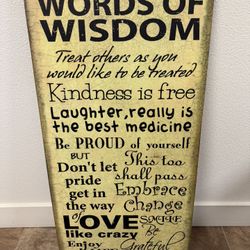 WORDS OF
WISDOM
Treat others as you
would like to be treated
Kindness is free
Laughter, really is
the best medicine
Be PROUD of yourself
BUT
Don't let
pride
get in
the way
of
This too
shall pass
Embrace
Change
LOVE
like crazy
SMILE
Be
Grateful
Enjoy